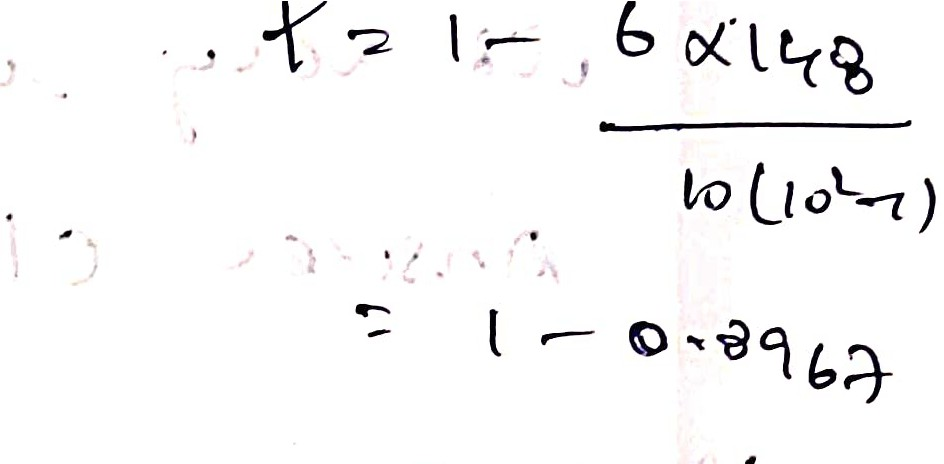 r = 1 - 6 × 148
10(10²-1)
= 1 - 0.8967